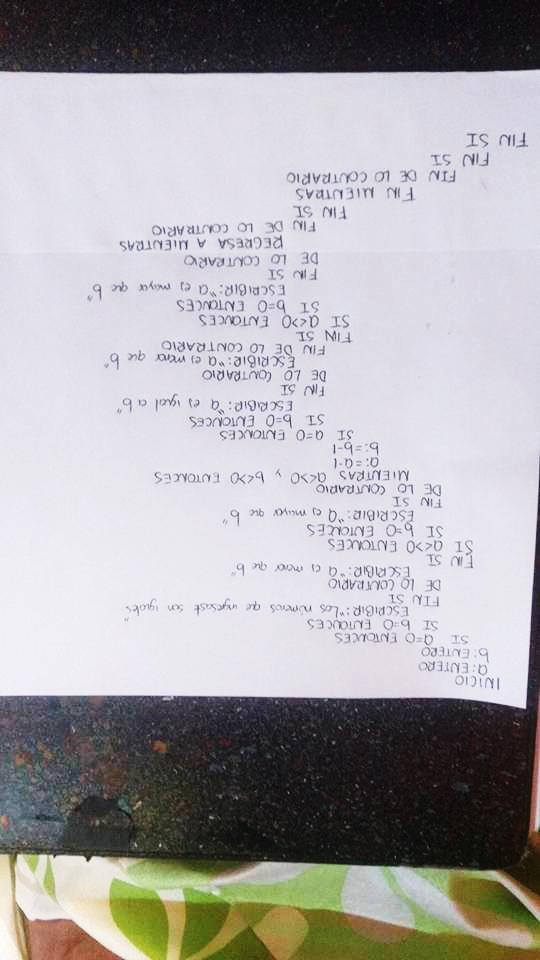 INICIO
a: ENTERO
b: ENTERO
SI a=0 ENTONCES
SI b=0 ENTONCES
ESCRIBIR: "Los números que ingresast son iguales"
FIN SI
DE LO CONTRARIO
ESCRIBIR: "a es menor que b"
FIN SI
SI a<>0 ENTONCES
SI b=0 ENTONCES
ESCRIBIR: "a es mayor que b"
FIN SI
DE LO CONTRARIO
MIENTRAS a<>0 y b<>0 ENTONCES
a:=a-1
b:=b-1
SI a=0 ENTONCES
SI b=0 ENTONCES
ESCRIBIR: "a es igual a b"
FIN SI
DE LO CONTRARIO
ESCRIBIR: "a es menor que b"
FIN DE LO CONTRARIO
FIN SI
SI a<>0 ENTONCES
SI b=0 ENTONCES
ESCRIBIR: "a es mayor que b"
FIN SI
DE LO CONTRARIO
REGRESA A MIENTRAS
FIN DE LO CONTRARIO
FIN SI
FIN MIENTRAS
FIN DE LO CONTRARIO
FIN SI
FIN SI